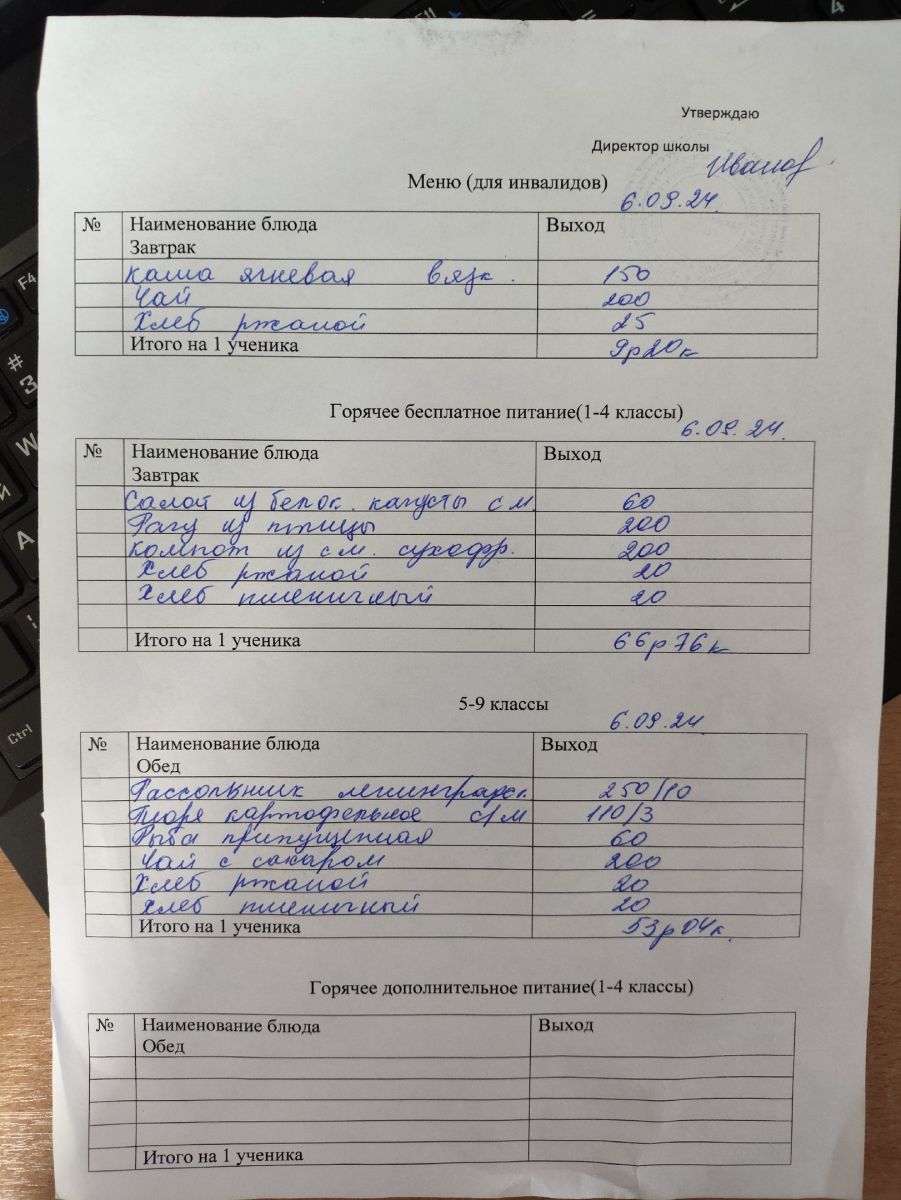 Утверждаю
Директор школы Иванов
Меню (для инвалидов)
6.09.24.
№ Наименование блюда Выход
Завтрак
Каша ягневая вязк. 150
Чай 200
Хлеб ржаной 25
Итого на 1 ученика 9р20к
Горячее бесплатное питание(1-4 классы)
6.09.24.
№ Наименование блюда Выход
Завтрак
Салат из белок. капусты с м. 60
Рагу из птицы 200
Компот из см. сухофр. 200
Хлеб ржаной 20
Хлеб пшеничный 20
Итого на 1 ученика 66р76к
5-9 классы
6.09.24
№ Наименование блюда Выход
Обед
Рассольник ленинградск. 250/10
Пюре картофельное с/м 110/3
Рыба припущенная 60
Чай с сахаром 200
Хлеб ржаной 20
Хлеб пшеничный 20
Итого на 1 ученика 53р04к.
Горячее дополнительное питание(1-4 классы)
№ Наименование блюда Выход
Обед
Итого на 1 ученика